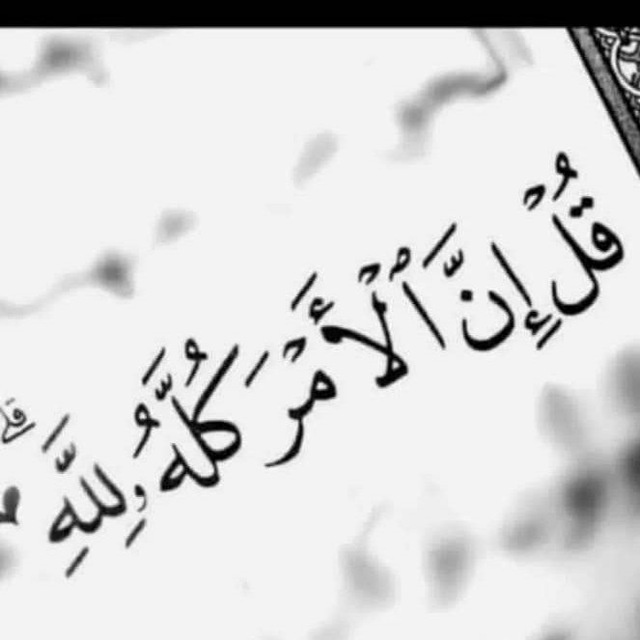 قُلْ إِنَّ ٱلْأَمْرَ كُلَّهُۥ لِلَّهِ ۗ